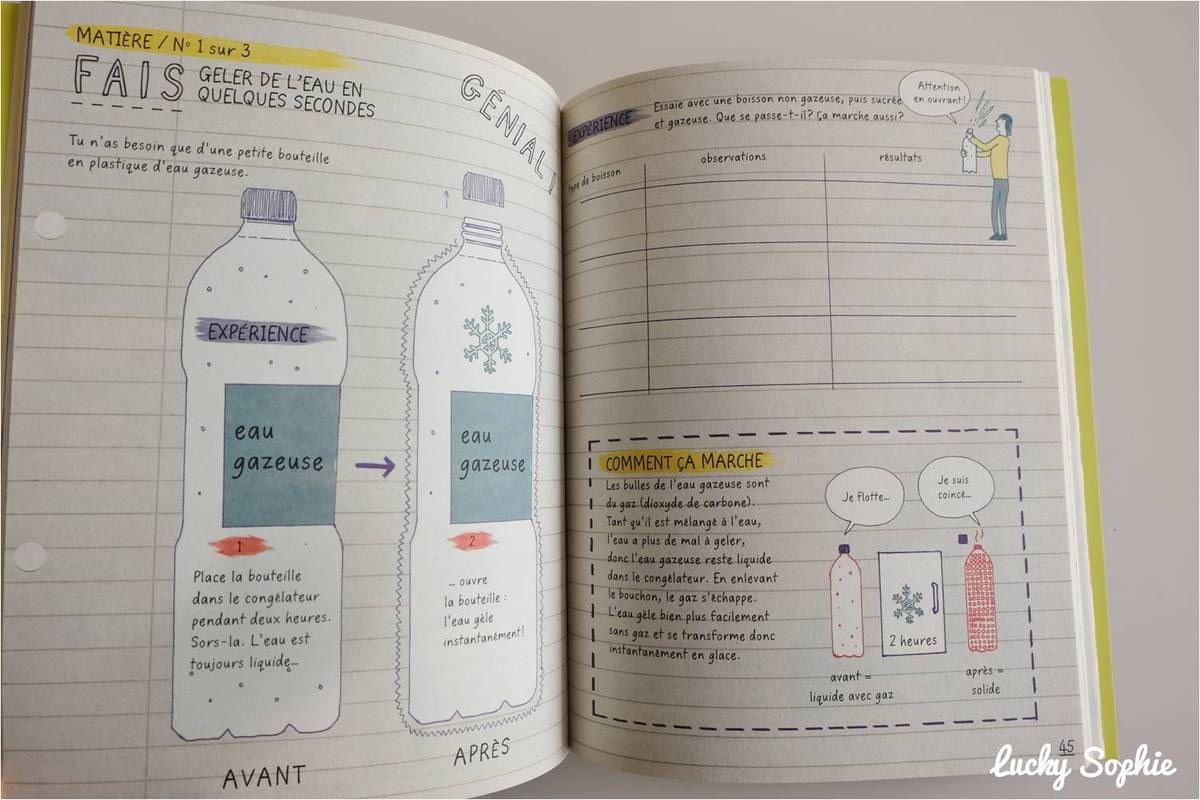 MATIÈRE / Nº 1 sur 3
FAIS GELER DE L'EAU EN
QUELQUES SECONDES
GÉNIAL !
Tu n'as besoin que d'une petite bouteille
en plastique d'eau gazeuse.
EXPÉRIENCE
eau
gazeuse
1
Place la bouteille
dans le congélateur
pendant deux heures.
Sors-la. L'eau est
toujours liquide...
AVANT
eau
gazeuse
2
... ouvre
la bouteille :
l'eau gèle
instantanément!
APRÈS
EXPÉRIENCE
Essaie avec une boisson non gazeuse, puis sucrée
et gazeuse. Que se passe-t-il? Ça marche aussi?
Attention
en ouvrant!
type de boisson
observations
résultats
COMMENT ÇA MARCHE
Les bulles de l'eau gazeuse sont
du gaz (dioxyde de carbone).
Tant qu'il est mélangé à l'eau,
l'eau a plus de mal à geler,
donc l'eau gazeuse reste liquide
dans le congélateur. En enlevant
le bouchon, le gaz s'échappe.
L'eau gèle bien plus facilement
sans gaz et se transforme donc
instantanément en glace.
Je flotte...
Je suis
coincé...
2 heures
avant =
liquide avec gaz
après =
solide
45
Lucky Sophie